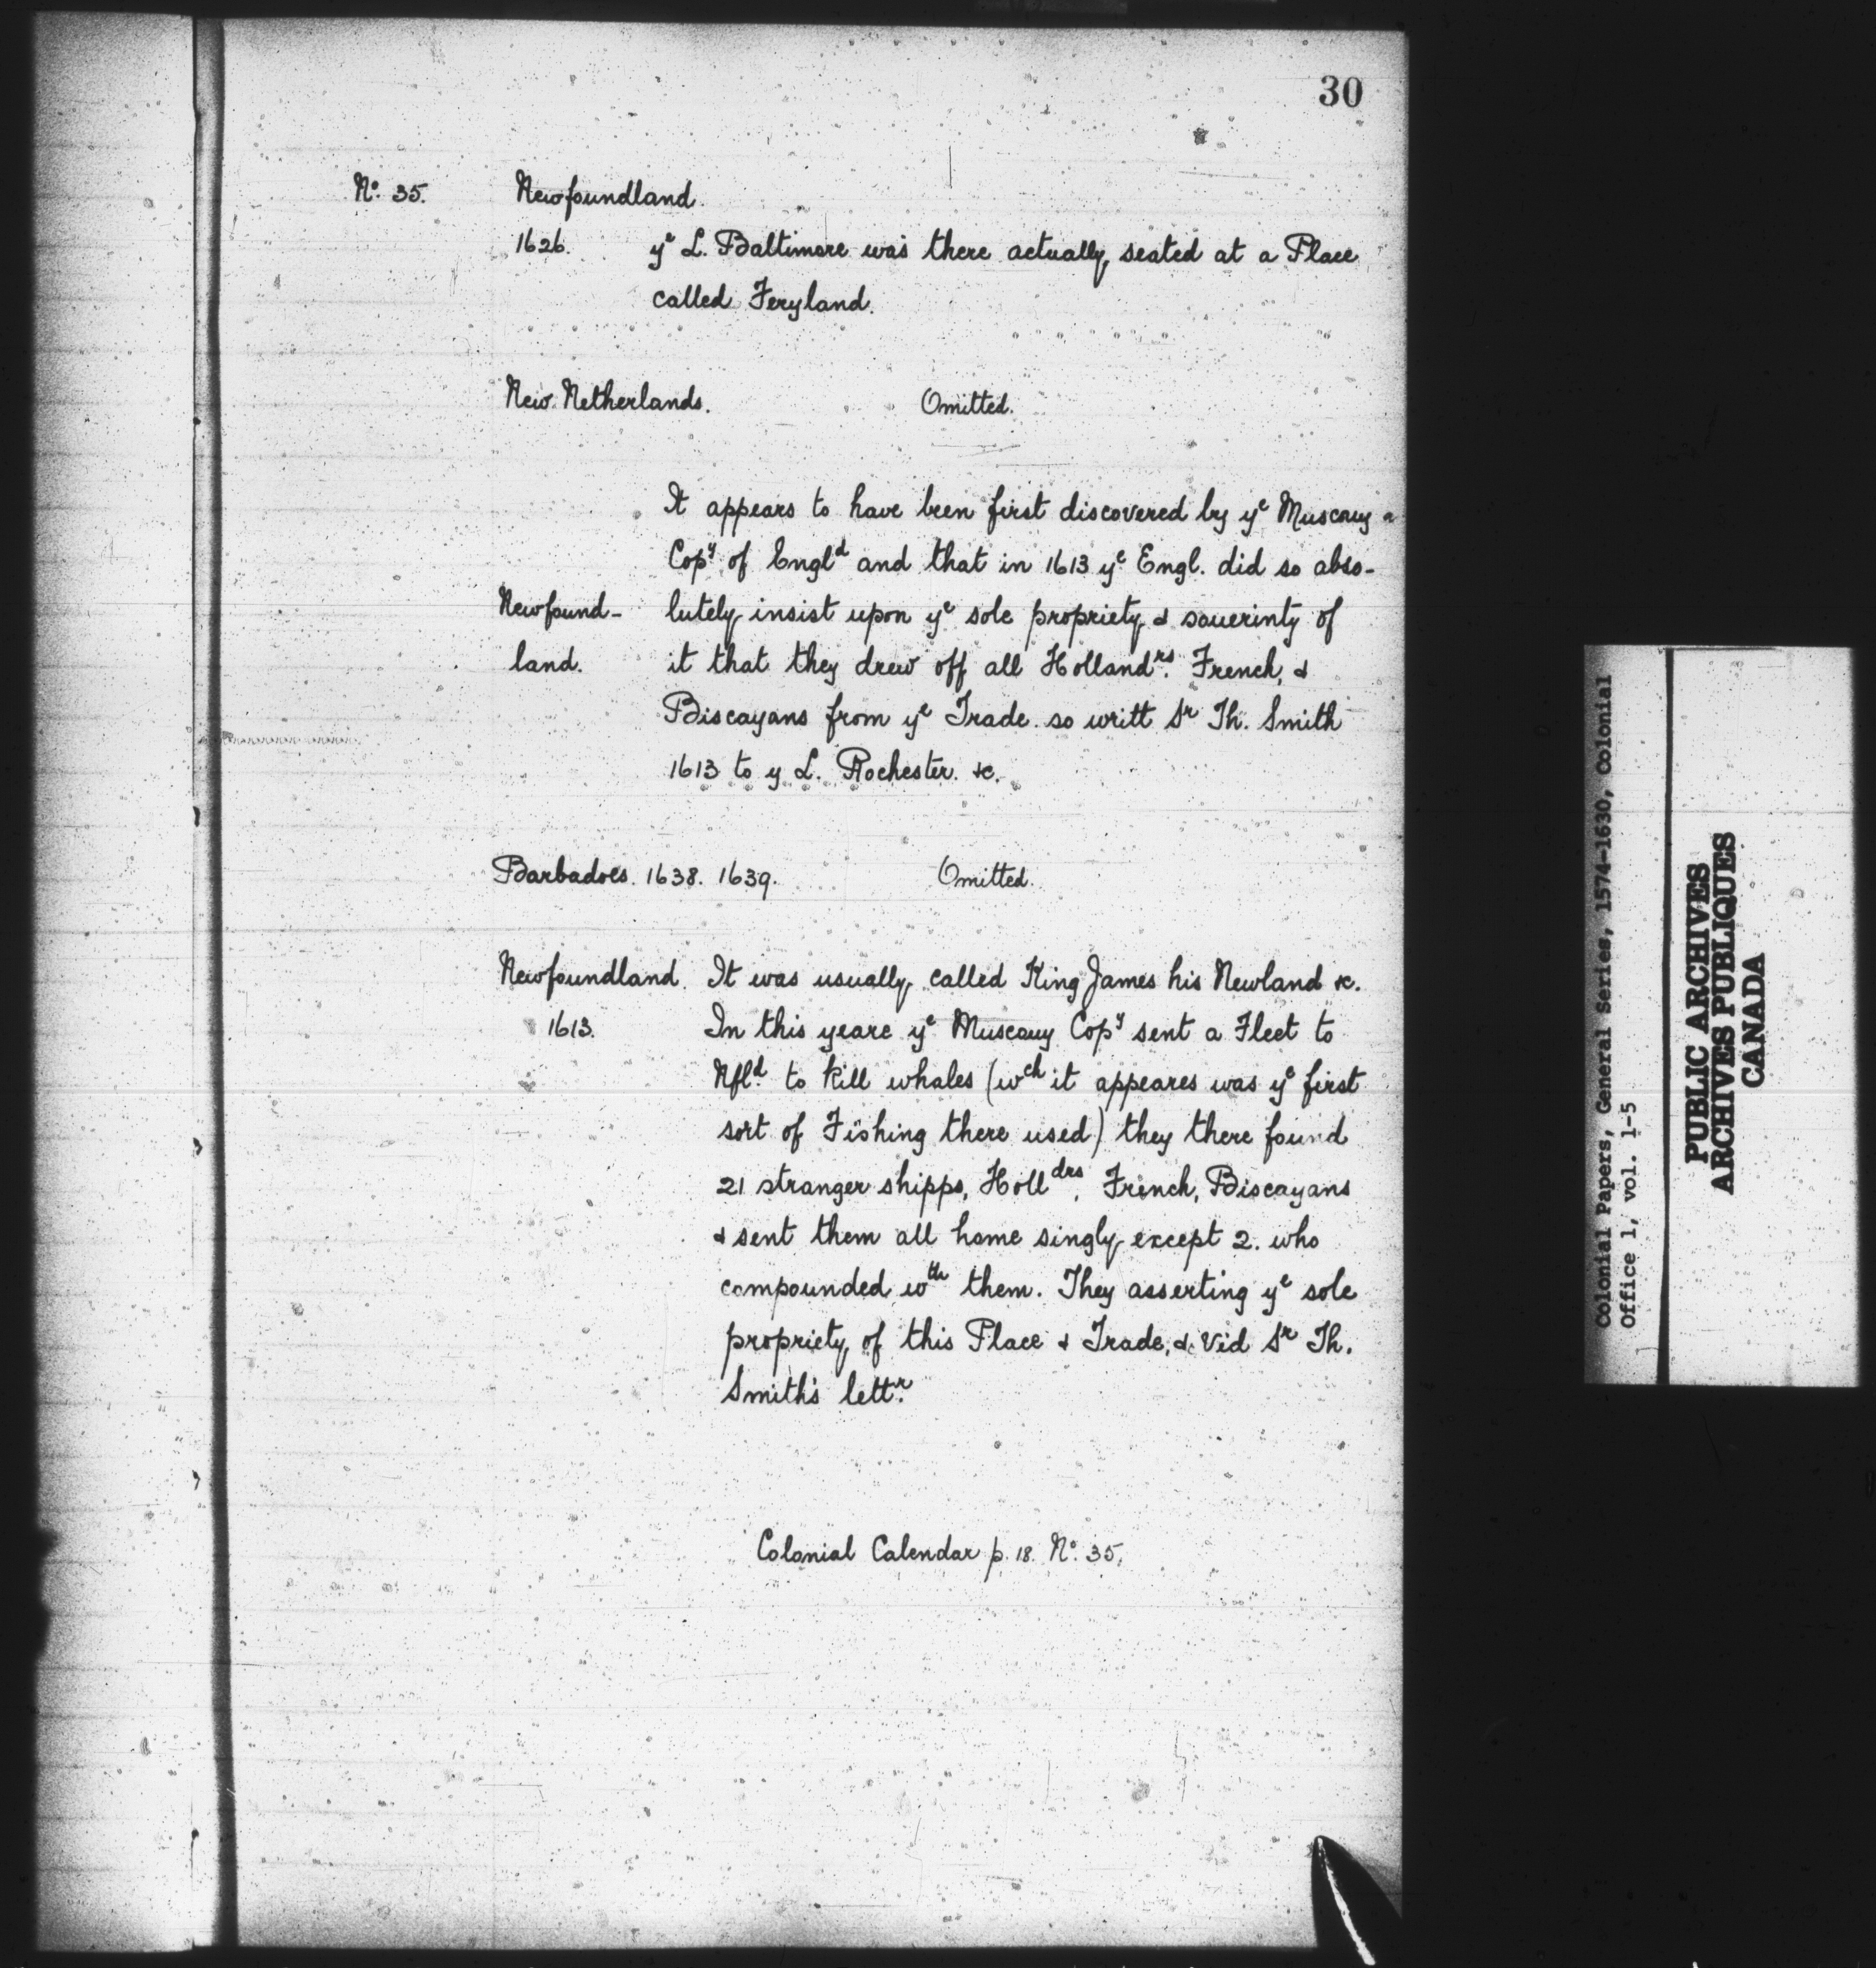 30
Nº. 35. Newfoundland.
1626. yᵉ L. Baltimore was there actually seated at a Place
called Feryland.
New Netherlands. Omitted.
It appears to have been first discovered by yᵉ Muscouy
Copʸ of Englᵈ and that in 1613 yᵉ Engl. did so abso-
Newfound- lutely insist upon yᵉ sole propriety & souerinty of
land. it that they drew off all Hollandʳˢ. French, &
Biscayans from yᵉ Trade so writt Sʳ Th. Smith
1613 to y L. Rochester. &c.
Barbadoes. 1638. 1639. Omitted.
Newfoundland. It was usually called King James his Newland &c.
1613. In this yeare yᵉ Muscouy Copʸ sent a Fleet to
Nflᵈ. to kill whales (wᶜʰ it appeares was yᵉ first
sort of Fishing there used) they there found
21 stranger shipps, Hollᵈʳˢ, French, Biscayans
& sent them all home singly except 2. who
compounded wᵗʰ them. They asserting yᵉ sole
propriety of this Place & Trade, &. Vid Sʳ Th.
Smith's lettʳ.
Colonial Calendar p. 18. Nº. 35.
Colonial Papers, General Series, 1574-1630, Colonial
Office 1, vol. 1-5
PUBLIC ARCHIVES
ARCHIVES PUBLIQUES
CANADA